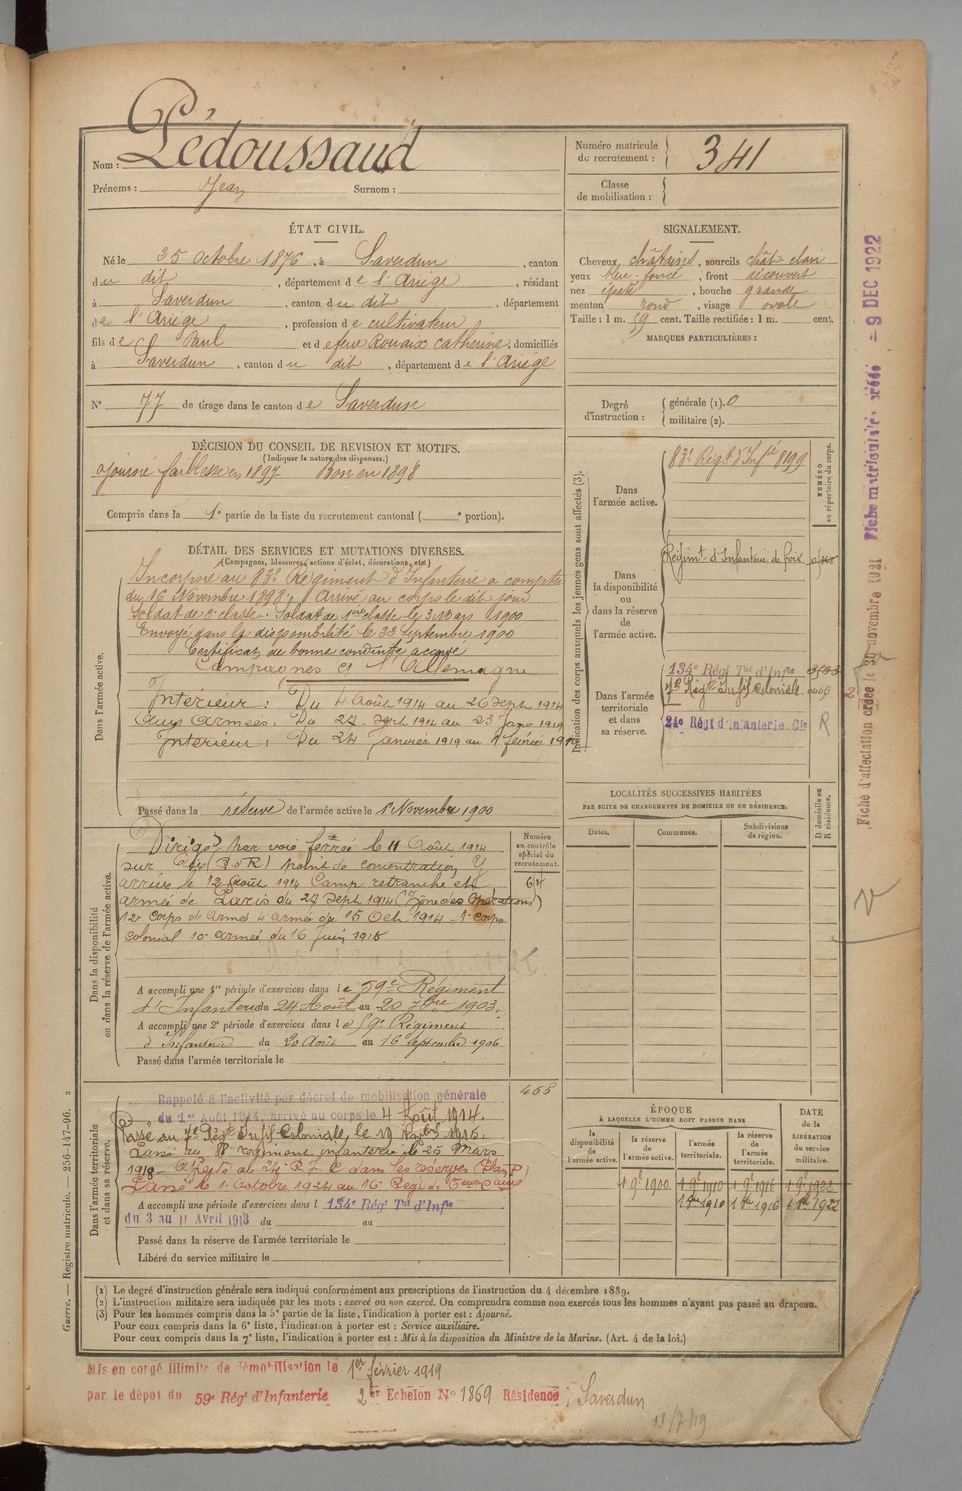 Nom : Lédoussaud
Prénoms : Jean Surnom :
Numéro matricule du recrutement : 341
Classe de mobilisation :
ÉTAT CIVIL.
Né le 25 octobre 1876, à Saverdun, canton
du dit, département de l'Ariège, résidant
à Saverdun, canton du dit, département
de l'Ariège, profession de cultivateur
fils de Paul et de feue Rouaix Catherine, domiciliés
à Saverdun, canton du dit, département de l'Ariège
N° 77 de tirage dans le canton de Saverdun
SIGNALEMENT.
Cheveux châtains, sourcils chât clair
yeux bleu-foncé, front découvert
nez épaté, bouche grande
menton rond, visage ovale
Taille : 1 m. 59 cent. Taille rectifiée : 1 m. cent.
MARQUES PARTICULIÈRES :
Degré d'instruction : générale (1). 0
militaire (2).
DÉCISION DU CONSEIL DE REVISION ET MOTIFS.
(Indiquer la nature des dispenses.)
Ajourné faiblesse en 1897 Bon en 1898
Compris dans la 1e partie de la liste du recrutement cantonal ( e portion).
DÉTAIL DES SERVICES ET MUTATIONS DIVERSES.
(Campagnes, blessures, actions d'éclat, décorations, etc.)
Dans l'armée active.
Incorporé au 83e Régiment d'Infanterie à compter
du 16 Novembre 1898, Arrivé au corps le dit jour
Soldat de 2e classe. Soldat de 1ère classe le 3 Mars 1900
Envoyé dans la disponibilité le 22 Septembre 1900
Certificat de bonne conduite accordé
Campagnes et l'Allemagne
Intérieur : Du 4 Août 1914 au 26 Sept 1914
Aux Armées : Du 27 Sept 1914 au 23 Janv 1919
Intérieur : Du 24 Janvier 1919 au 1 février 1919
Passé dans la réserve de l'armée active le 1er Novembre 1900
Indication des corps auxquels les jeunes gens sont affectés (3).
NUMÉRO au répertoire du corps.
Dans l'armée active.
83e Régt d'Infie 8199
Dans la disponibilité ou dans la réserve de l'armée active.
Régimt d'Infanterie de Foix
Dans l'armée territoriale et dans sa réserve.
134e Régt Tal d'Infie
7e Régt Inf Coloniale
24e Régt d'Infanterie Cle
R
Dans la disponibilité ou dans la réserve de l'armée active.
Numéro au contrôle spécial du recrutement.
Dirigé par voie ferrée le 11 Août 1914
sur point de concentration Y
arrivé le 12 Août 1914 Camp retranché et
armée de Paris du 27 Sept 1914 (Zone des Opérations)
12e Corps d'Armée 4 armée du 15 Oct 1914 - 1er corps
colonial 10e armée du 16 Juin 1915
A accompli une 1re période d'exercices dans le 59e Régiment
d'Infanterie du 24 Août au 20 7bre 1903.
A accompli une 2e période d'exercices dans le 59e Régiment
d'Infanterie du 20 Août au 16 Septembre 1906
Passé dans l'armée territoriale le
LOCALITÉS SUCCESSIVES HABITÉES
PAR SUITE DE CHANGEMENTS DE DOMICILE OU DE RÉSIDENCE.
Dates. Communes. Subdivisions de région.
D domicile ou R résidence.
Dans l'armée territoriale et dans sa réserve.
Rappelé à l'activité par décret de mobilisation générale
du 1er Août 1914, arrivé au corps le 4 Août 1914.
Passé au 7e Régt Inf Coloniale, le 19 1915.
Passé au régiment infanterie le 25 Mars
1918 - Affecté al 24e R. I. C dans les réserves (Plan P)
Passé le 1 Octobre 1924 au 16e Régt de
A accompli une période d'exercices dans l 134e Régt Tal d'Infie
du 3 au 11 Avril 1913 du au
Passé dans la réserve de l'armée territoriale le
Libéré du service militaire le
ÉPOQUE
À LAQUELLE L'HOMME DOIT PASSER DANS
la disponibilité de l'armée active.
la réserve de l'armée active.
l'armée territoriale.
la réserve de l'armée territoriale.
DATE de la LIBÉRATION du service militaire.
1 9e 1900 1 9e 1910 1 9e 1916 1 9e 1922
1 8bre 1910 1 8bre 1916 1 8bre 1922
(1) Le degré d'instruction générale sera indiqué conformément aux prescriptions de l'instruction du 4 décembre 1889.
(2) L'instruction militaire sera indiquée par les mots : exercé ou non exercé. On comprendra comme non exercés tous les hommes n'ayant pas passé au drapeau.
(3) Pour les hommes compris dans la 5e partie de la liste, l'indication à porter est : Ajourné.
Pour ceux compris dans la 6e liste, l'indication à porter est : Service auxiliaire.
Pour ceux compris dans la 7e liste, l'indication à porter est : Mis à la disposition du Ministre de la Marine. (Art. 4 de la loi.)
Guerre. — Registre matricule. — 256-147-96. 3
Mis en congé illimité de démobilisation le 1er février 1919
par le dépôt du 59e Régt d'Infanterie 2er Echelon N° 1869 Résidence, Saverdun
11/7/19
Fiche d'affectation créée le 30 novembre 1921 Fiche matriculaire créée - 9 DEC 1922